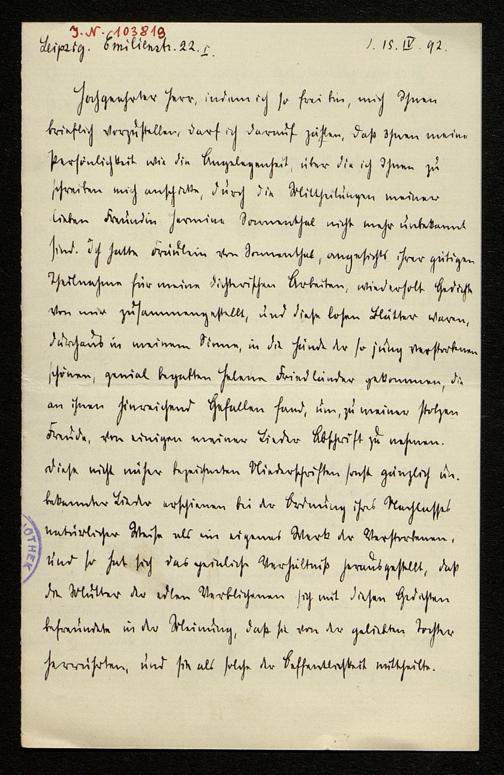 J. N. 103819
Leipzig. Emilienstr. 22. I.
d. 15. IV. 92.
Hochgeehrter Herr, indem ich so frei bin, mich Ihnen
brieflich vorzustellen, darf ich darauf zählen, daß Ihnen meine
Persönlichkeit wie die Angelegenheit, über die ich Ihnen zu
schreiben mich anschicke, durch die Mittheilungen meiner
lieben Freundin Hermine Sonnenthal nicht mehr unbekannt
sind. Ich hatte Fräulein von Sonnenthal, angesichts ihrer gütigen
Theilnahme für meine dichterischen Arbeiten, wiederholt Gedichte
von mir zusammengestellt, und diese losen Blätter waren,
durchaus in meinem Sinne, in die Hände der so jung verstorbenen
schönen, genial begabten Helene Friedländer gekommen, die
an ihnen hinreichend Gefallen fand, um, zu meiner stolzen
Freude, von einigen meiner Lieder Abschrift zu nehmen.
Diese nicht näher bezeichneten Niederschriften sonst gänzlich un-
bekannter Lieder erschienen bei der Ordnung ihres Nachlasses
natürlicher Weise als ein eigenes Werk der Verstorbenen,
und so hat sich das peinliche Verhältniß herausgestellt, daß
die Mutter der edlen Verblichenen sich mit diesen Gedichten
befreundete in der Meinung, daß sie von der geliebten Tochter
herrührten, und sie als solche der Oeffentlichkeit mittheilte.
OTHEK